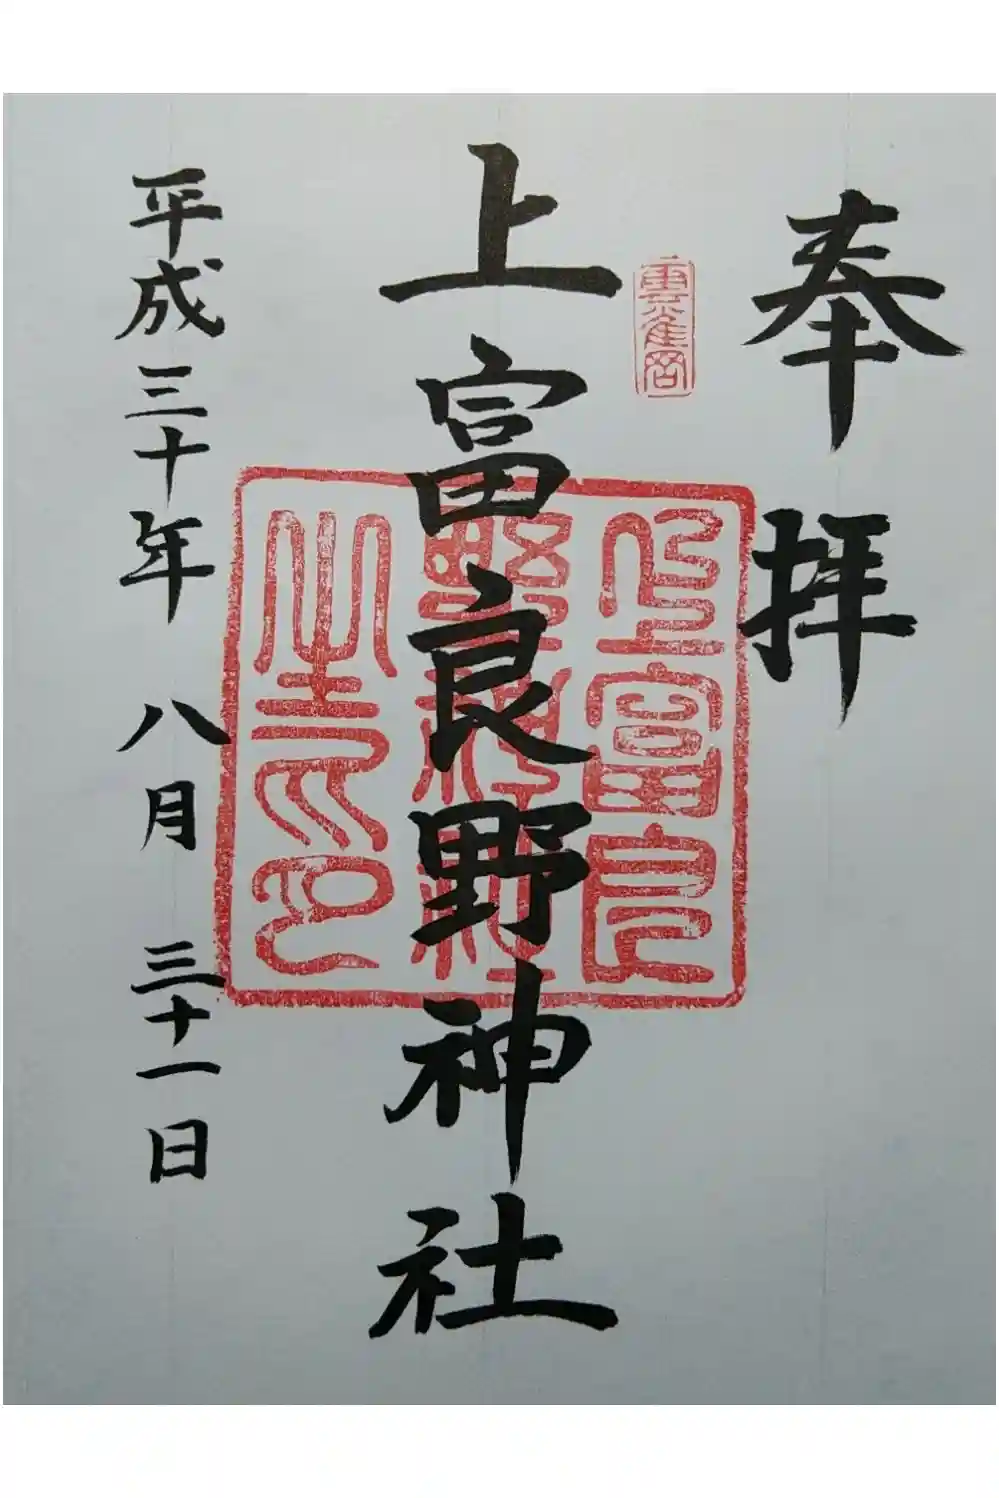 奉拝
上富良野神社
上富良野神社之印
平成三十年 八月 三十一日